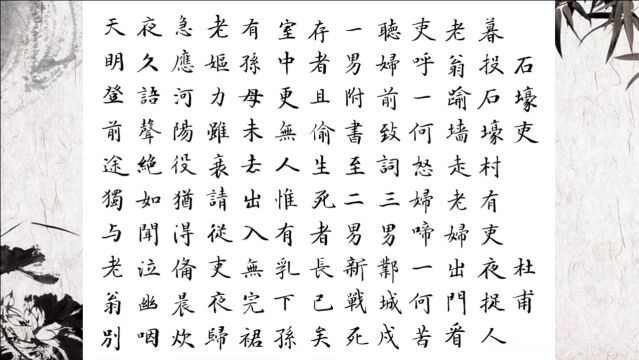 石壕吏 杜甫
暮投石壕村有吏夜捉人
老翁踰墙走老婦出門看
吏呼一何怒婦啼一何苦
聽婦前致詞三男鄴城戍
一男附書至二男新戰死
存者且偷生死者長已矣
室中更無人惟有乳下孫
有孫母未去出入無完裙
老嫗力雖衰請從吏夜歸
急應河陽役猶得備晨炊
夜久語聲絕如聞泣幽咽
天明登前途獨与老翁別